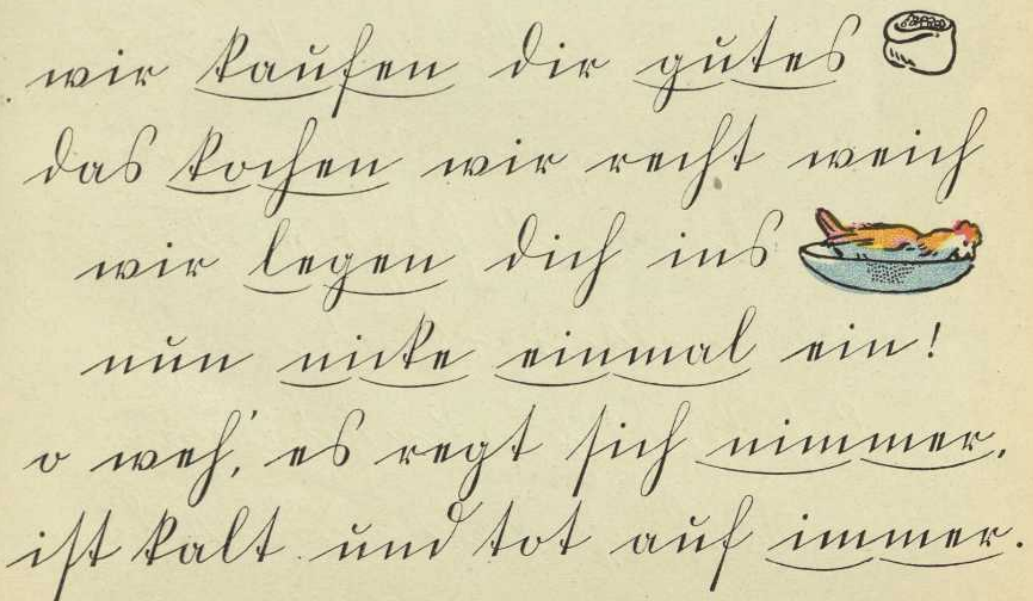 wir kaufen dir gutes
das kochen wir recht weich
wir legen dich ins
nun nicke einmal ein!
o weh, es regt sich nimmer,
ist kalt und tot auf immer.